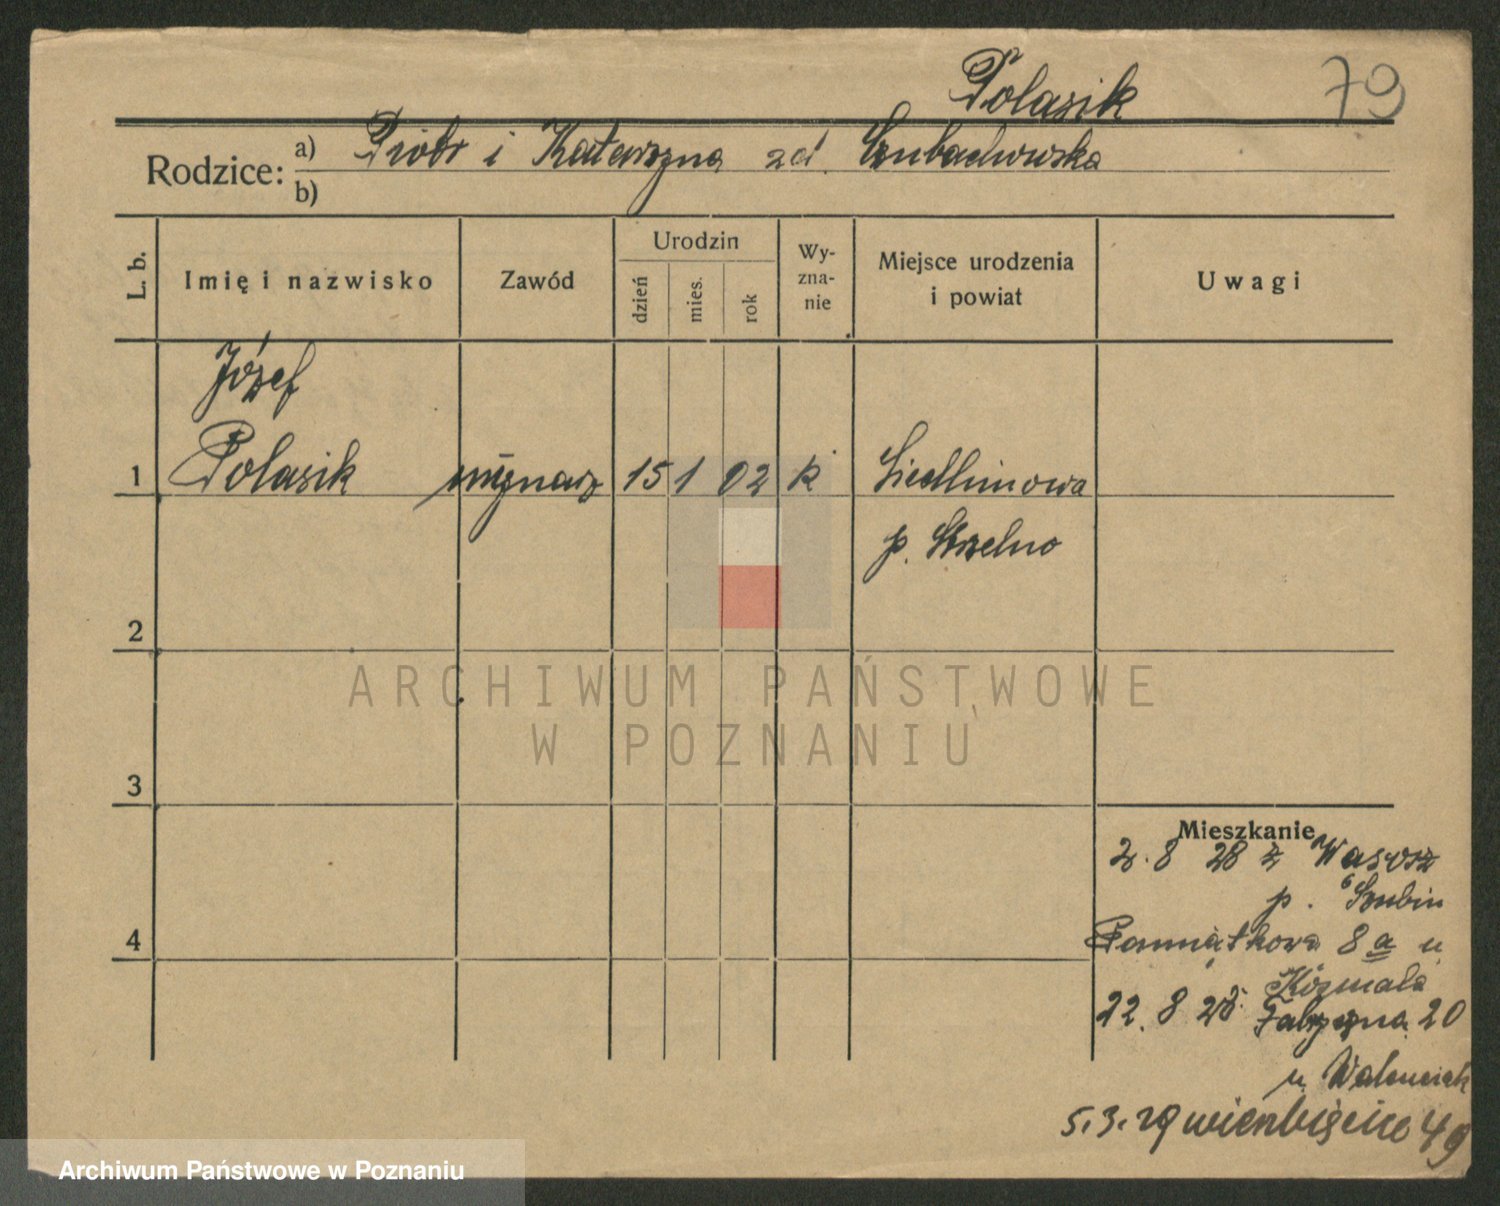 Polasik 79
Rodzice: a) Piotr i Katarzyna zd. Szubachowska
b)
L. b. Imię i nazwisko Zawód Urodzin dzień mies. rok Wy-zna-nie Miejsce urodzenia i powiat Uwagi
Józef
1 Polasik młynarz 15 1 02 k Siedlimowa
p. Strzelno
2
ARCHIWUM PAŃSTWOWE
W POZNANIU
3
Mieszkanie
2. 8 28 z Wąsosz
p. Szubin
4 Pamiątkowa 8a u
Kózmala
22. 8 28. Fabryczna 20
u
5.3.29 49
Archiwum Państwowe w Poznaniu